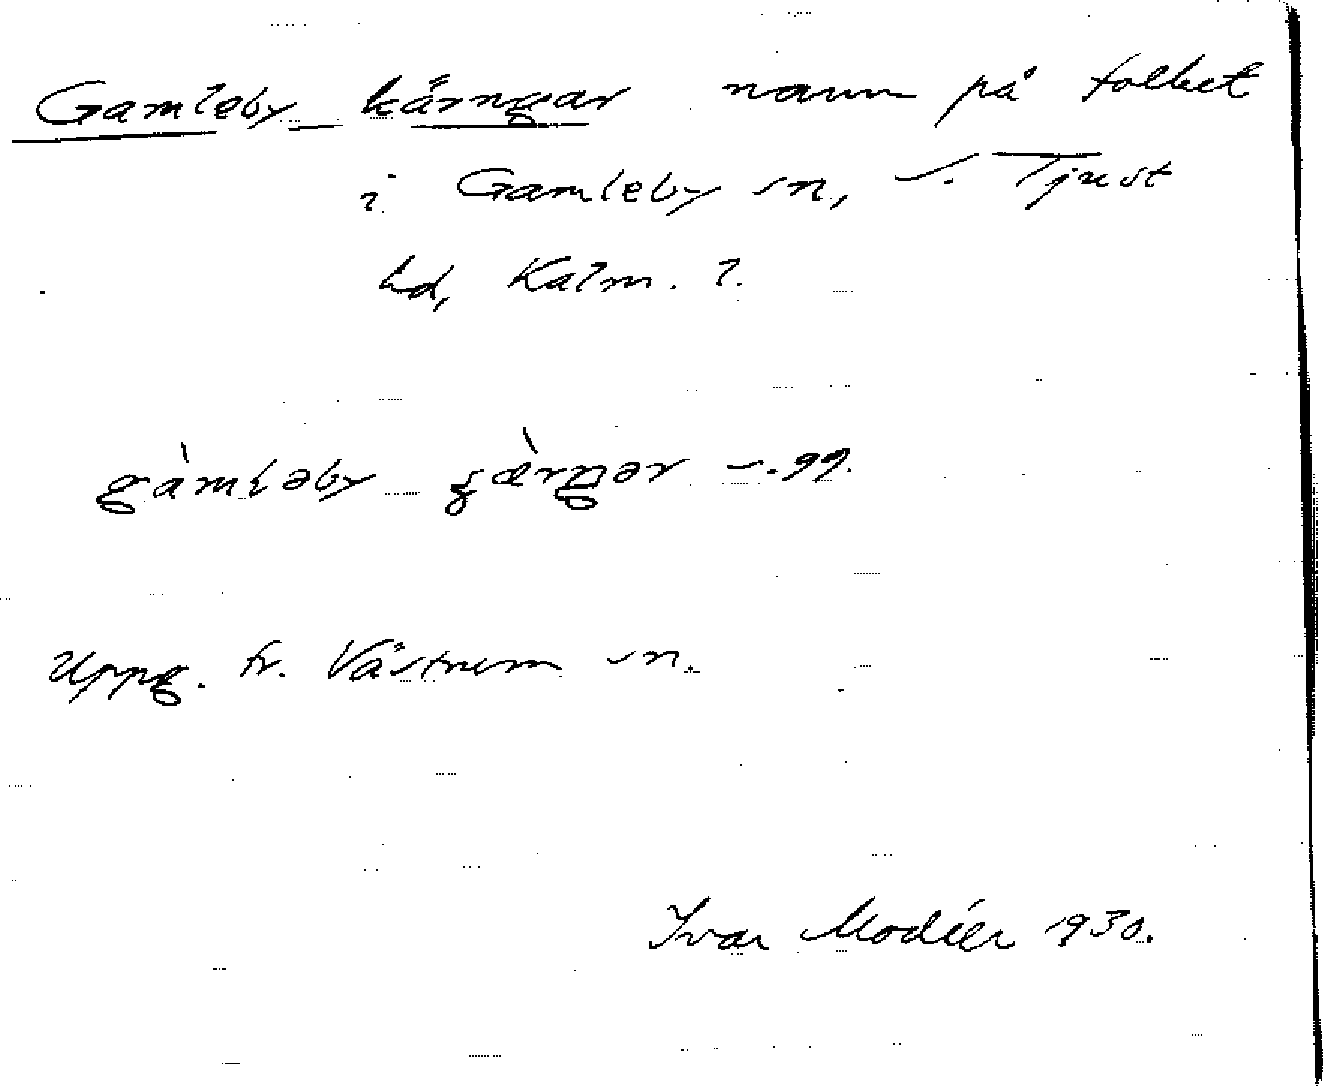 Gamleby kärngar namn på folket
i Gamleby sn, S. Tjust
hd, Kalm. l.
gàmləby
Uppg. fr. Västrum sn.
Ivar Modéer 1930.